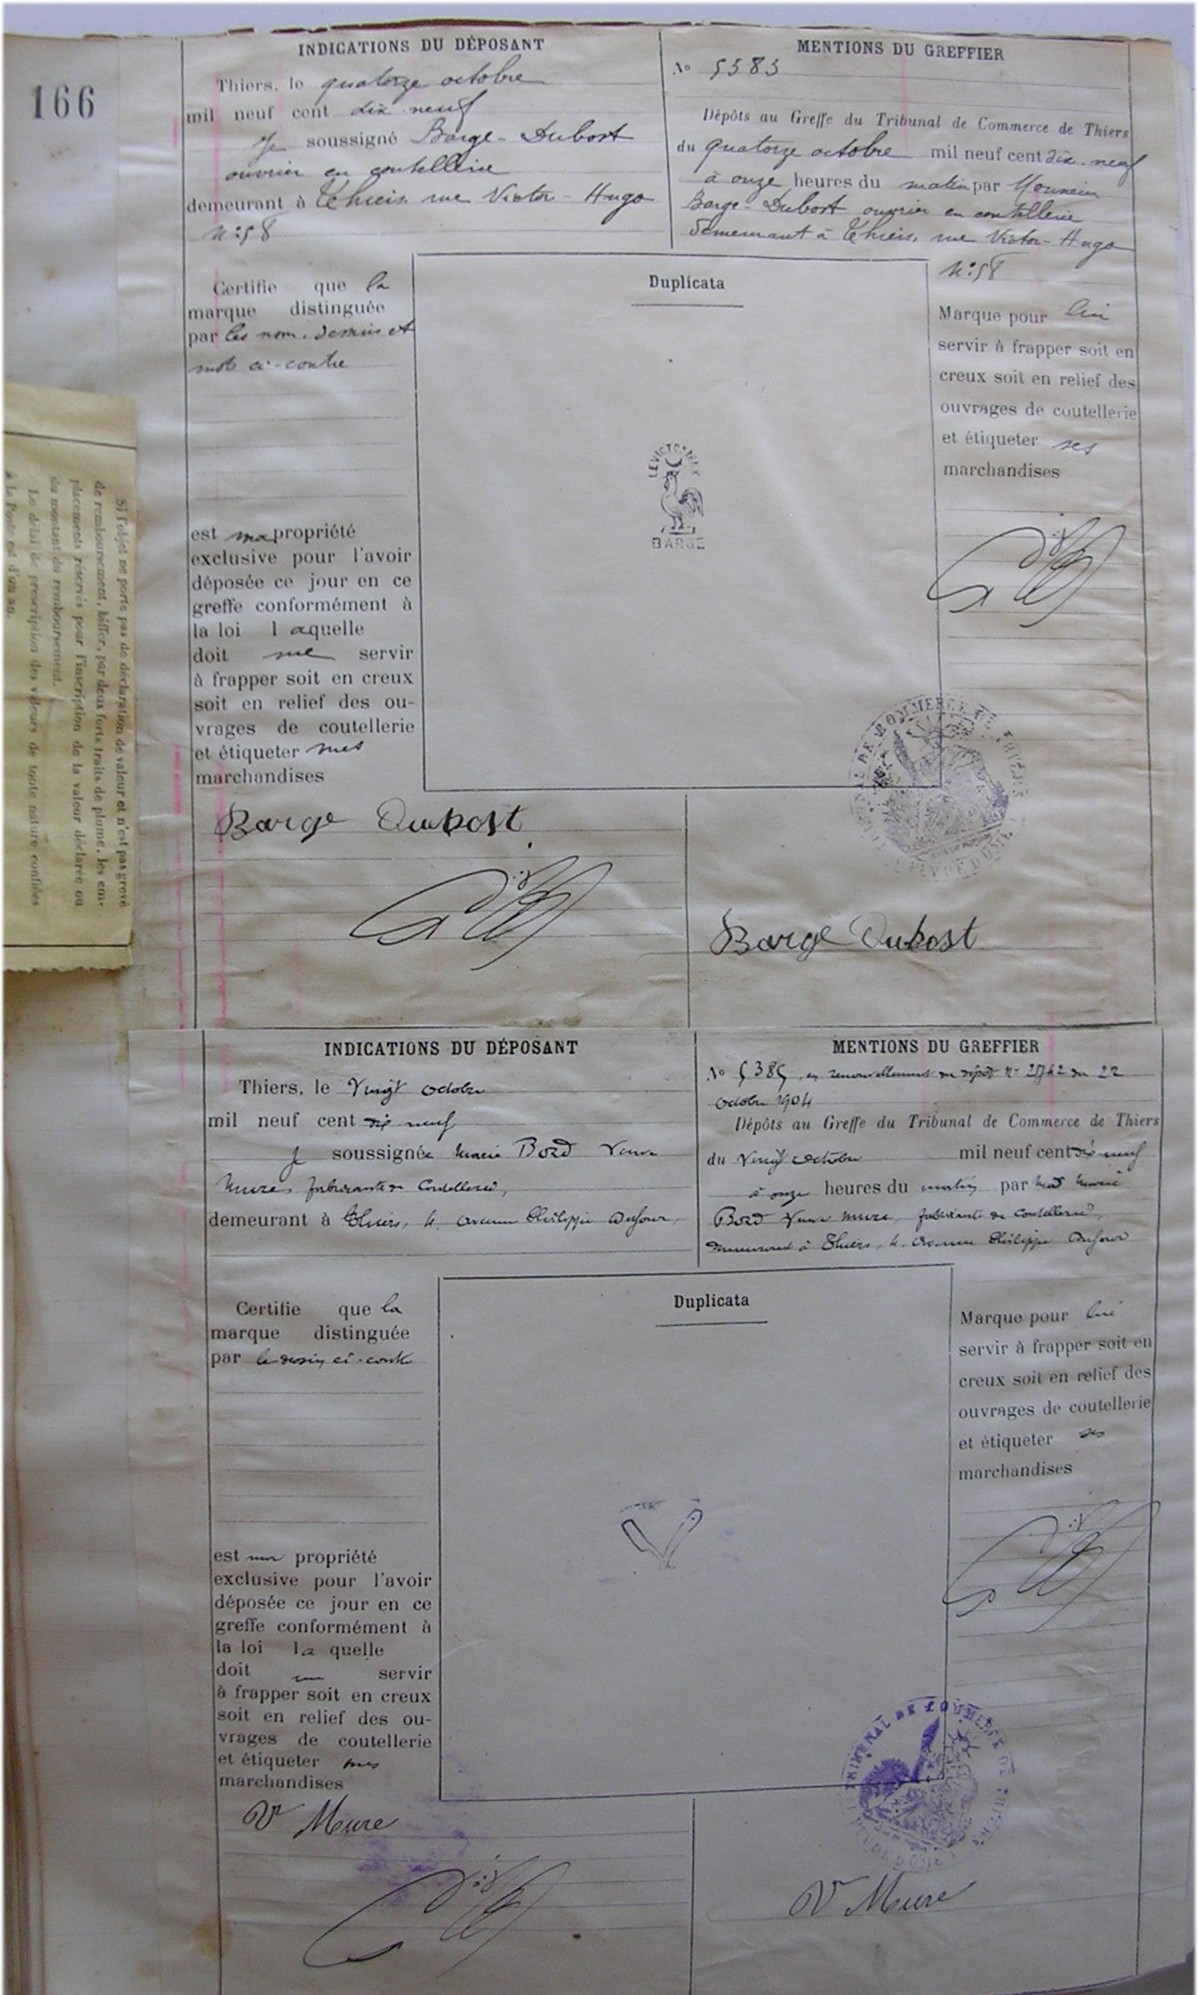 166
INDICATIONS DU DÉPOSANT
Thiers, le quatorze octobre
mil neuf cent dix neuf
Je soussigné Barge-Dubost
ouvrier en coutellerie
demeurant à Thiers, rue Victor-Hugo
N° 58
MENTIONS DU GREFFIER
No 5383
Dépôts au Greffe du Tribunal de Commerce de Thiers
du quatorze octobre mil neuf cent dix-neuf
à onze heures du matin par Monsieur
Barge-Dubost ouvrier en coutellerie
demeurant à Thiers, rue Victor-Hugo
N° 58
Certifie que la
marque distinguée
par les nom, dessin et
mots ci-contre
est ma propriété
exclusive pour l'avoir
déposée ce jour en ce
greffe conformément à
la loi laquelle
doit me servir
à frapper soit en creux
soit en relief des ou-
vrages de coutellerie
et étiqueter mes
marchandises
Duplicata
LE VICTORIEUX
BARGE
Marque pour lui
servir à frapper soit en
creux soit en relief des
ouvrages de coutellerie
et étiqueter ses
marchandises
TRIBUNAL DE COMMERCE DE THIERS
PUY DE DOME
Barge Dubost
Barge Dubost
Si l'objet ne porte pas de déclaration de valeur et n'est pas grevé
de remboursement, biffer, par deux forts traits de plume, les em-
placements réservés pour l'inscription de la valeur déclarée ou
du montant du remboursement.
Le délai de prescription des valeurs de toute nature confiées
à la Poste est d'un an.
INDICATIONS DU DÉPOSANT
Thiers, le Vingt octobre
mil neuf cent dix neuf
Je soussignée Marie Bord Veuve
Mure, fabricante de Coutellerie,
demeurant à Thiers, 4, avenue Philippe Dufour,
MENTIONS DU GREFFIER
No 5385, en renouvellement du dépôt N° 2742 du 22
octobre 1904
Dépôts au Greffe du Tribunal de Commerce de Thiers
du Vingt octobre mil neuf cent dix neuf
à onze heures du matin par Mad Marie
Bord Veuve Mure, fabricante de Coutellerie,
demeurant à Thiers, 4, avenue Philippe Dufour
Certifie que la
marque distinguée
par le dessin ci-contre
est ma propriété
exclusive pour l'avoir
déposée ce jour en ce
greffe conformément à
la loi laquelle
doit me servir
à frapper soit en creux
soit en relief des ou-
vrages de coutellerie
et étiqueter mes
marchandises
Duplicata
Marque pour lui
servir à frapper soit en
creux soit en relief des
ouvrages de coutellerie
et étiqueter ses
marchandises
TRIBUNAL DE COMMERCE DE THIERS
PUY DE DOME
Ve Mure
Ve Mure